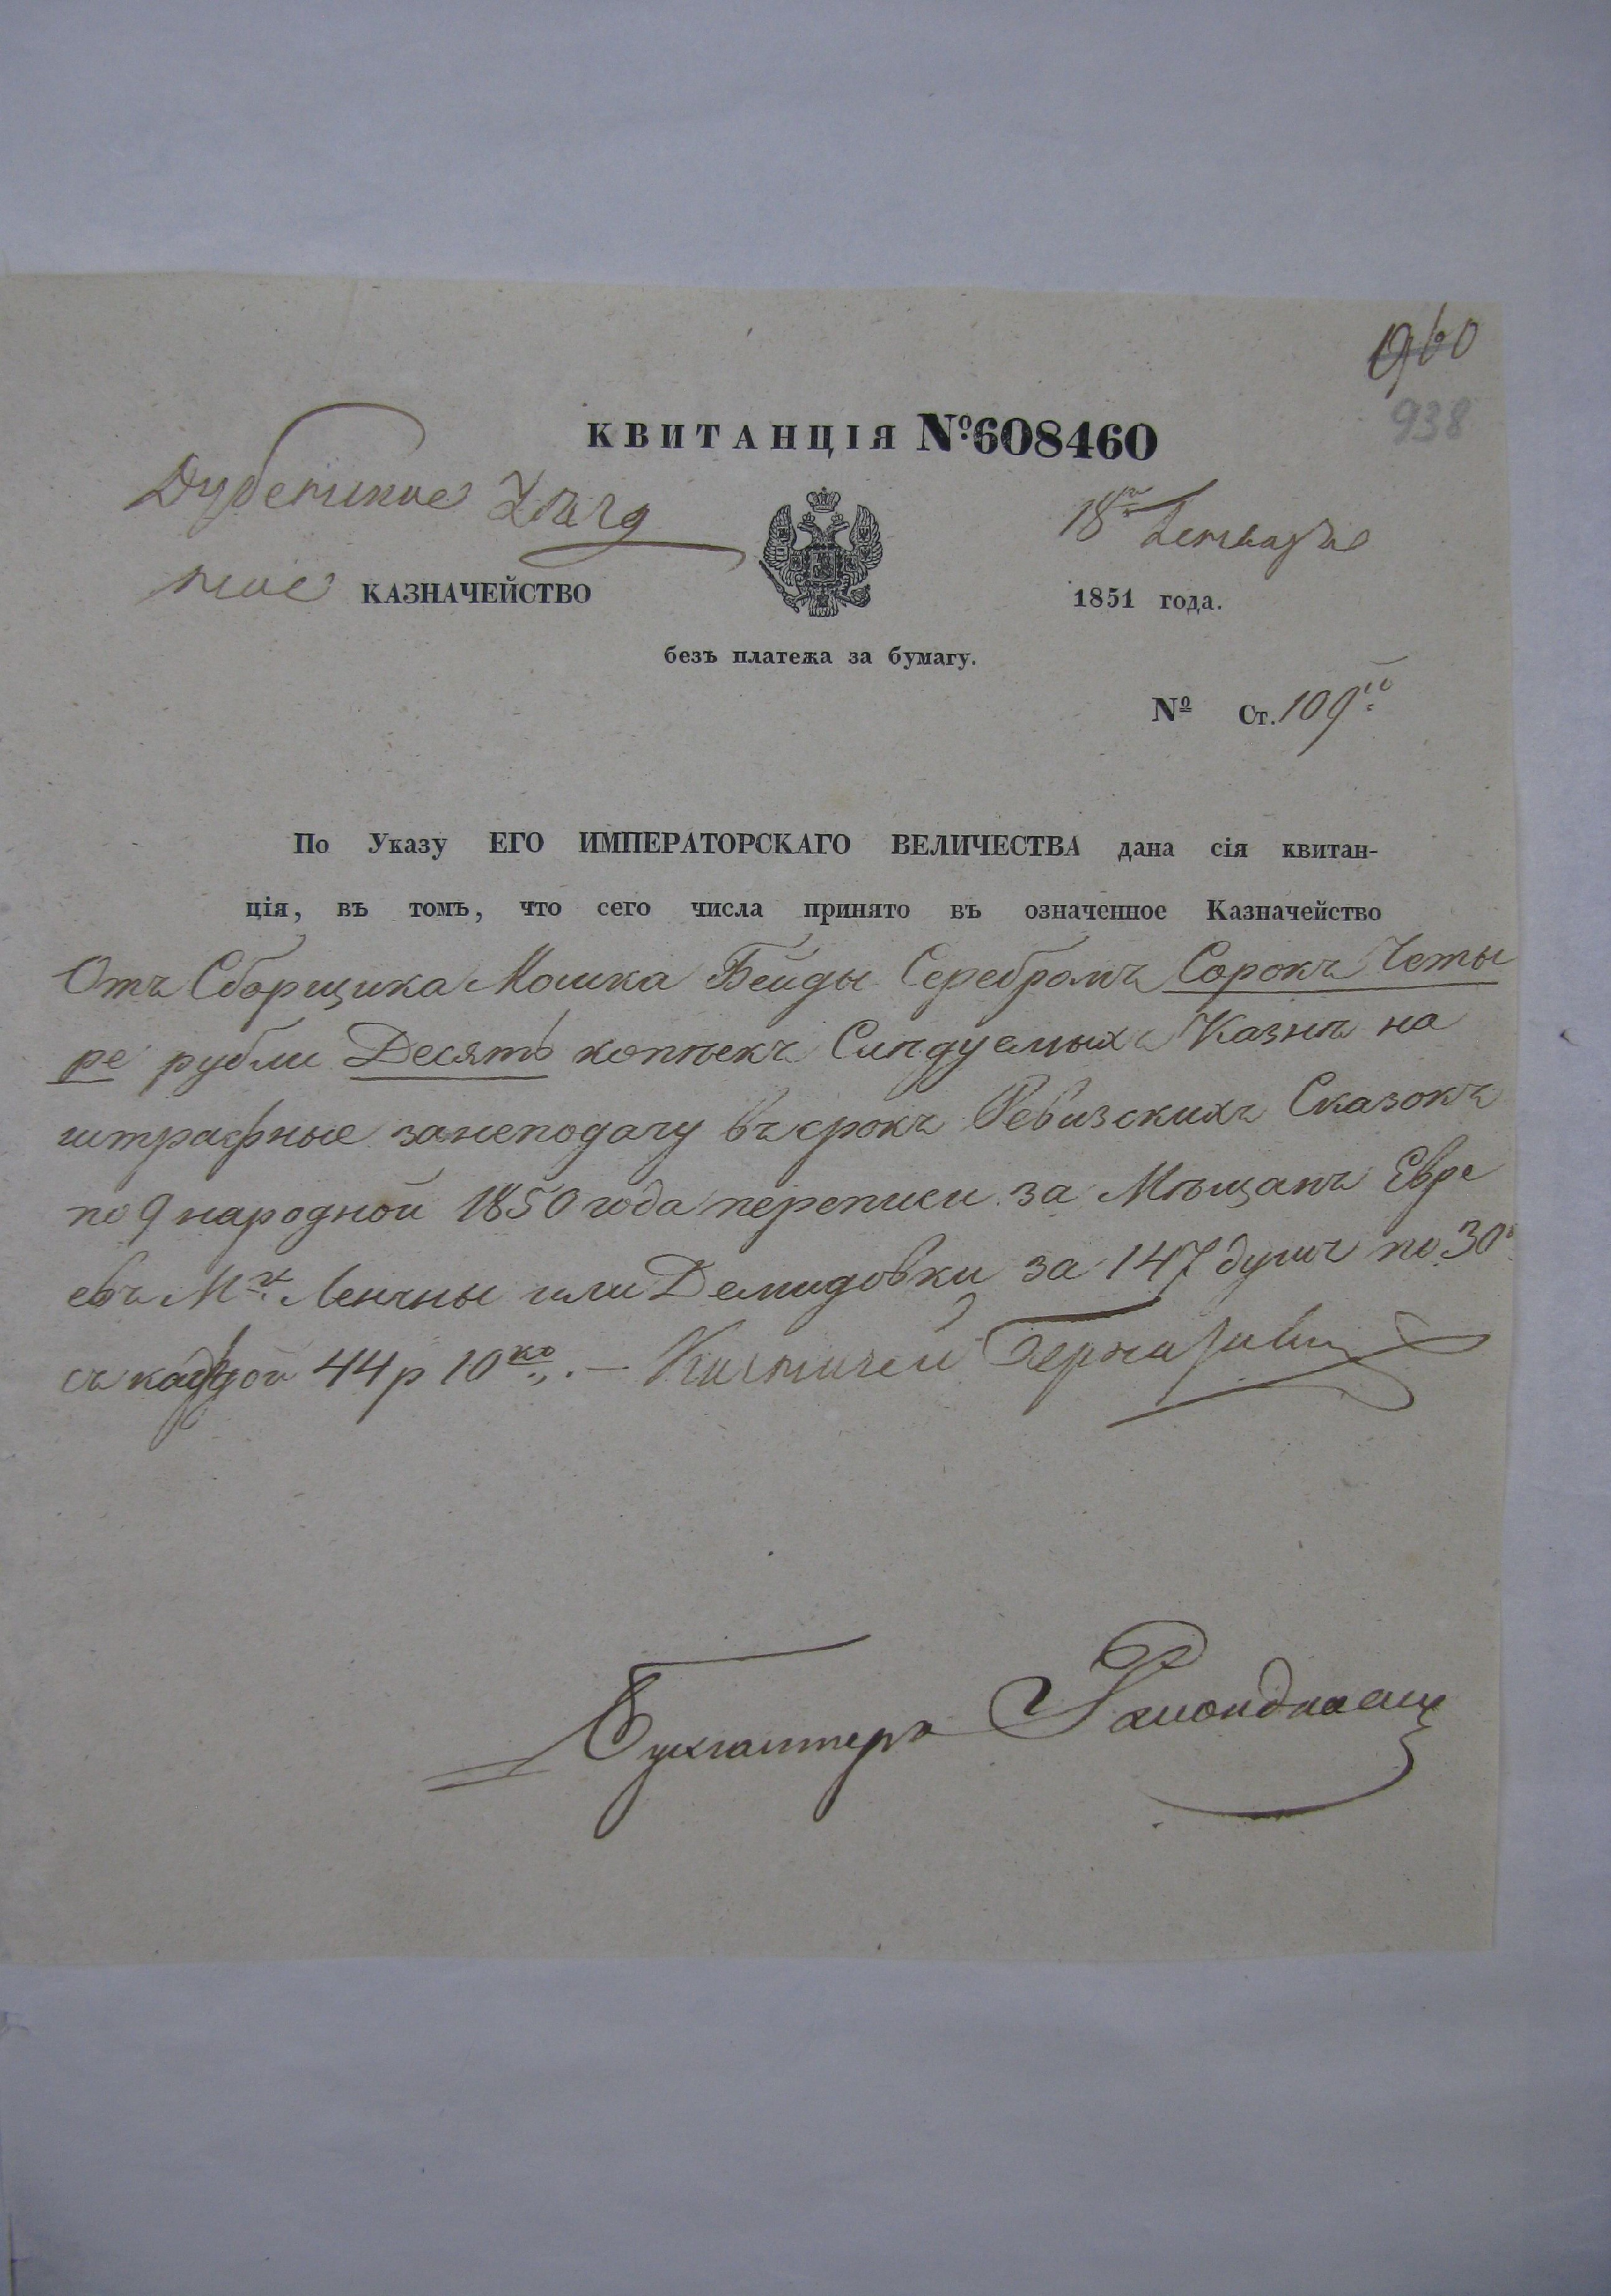 960
938
КВИТАНЦІЯ №608460
Дубенское Уѣзд
ное КАЗНАЧЕЙСТВО
18го Генваря
1851 года.
безъ платежа за бумагу.
№ Ст. 109
По Указу ЕГО ИМПЕРАТОРСКАГО ВЕЛИЧЕСТВА дана сія квитан-
ція, въ томъ, что сего числа принято въ означенное Казначейство
Отъ Сборщика Мошка Бейды Серебромъ Сорокъ Четы
ре рубли Десять копѣекъ Слѣдуемыхъ Казнѣ на
штрафные занеподачу въ срокъ Ревизскихъ Сказокъ
по 9 народной 1850 года переписи за Мѣщанъ Евре
евъ Мка Демидовки за 147 душъ по 30
съ каждой 44 р 10 ко. —
Бухгалтеръ